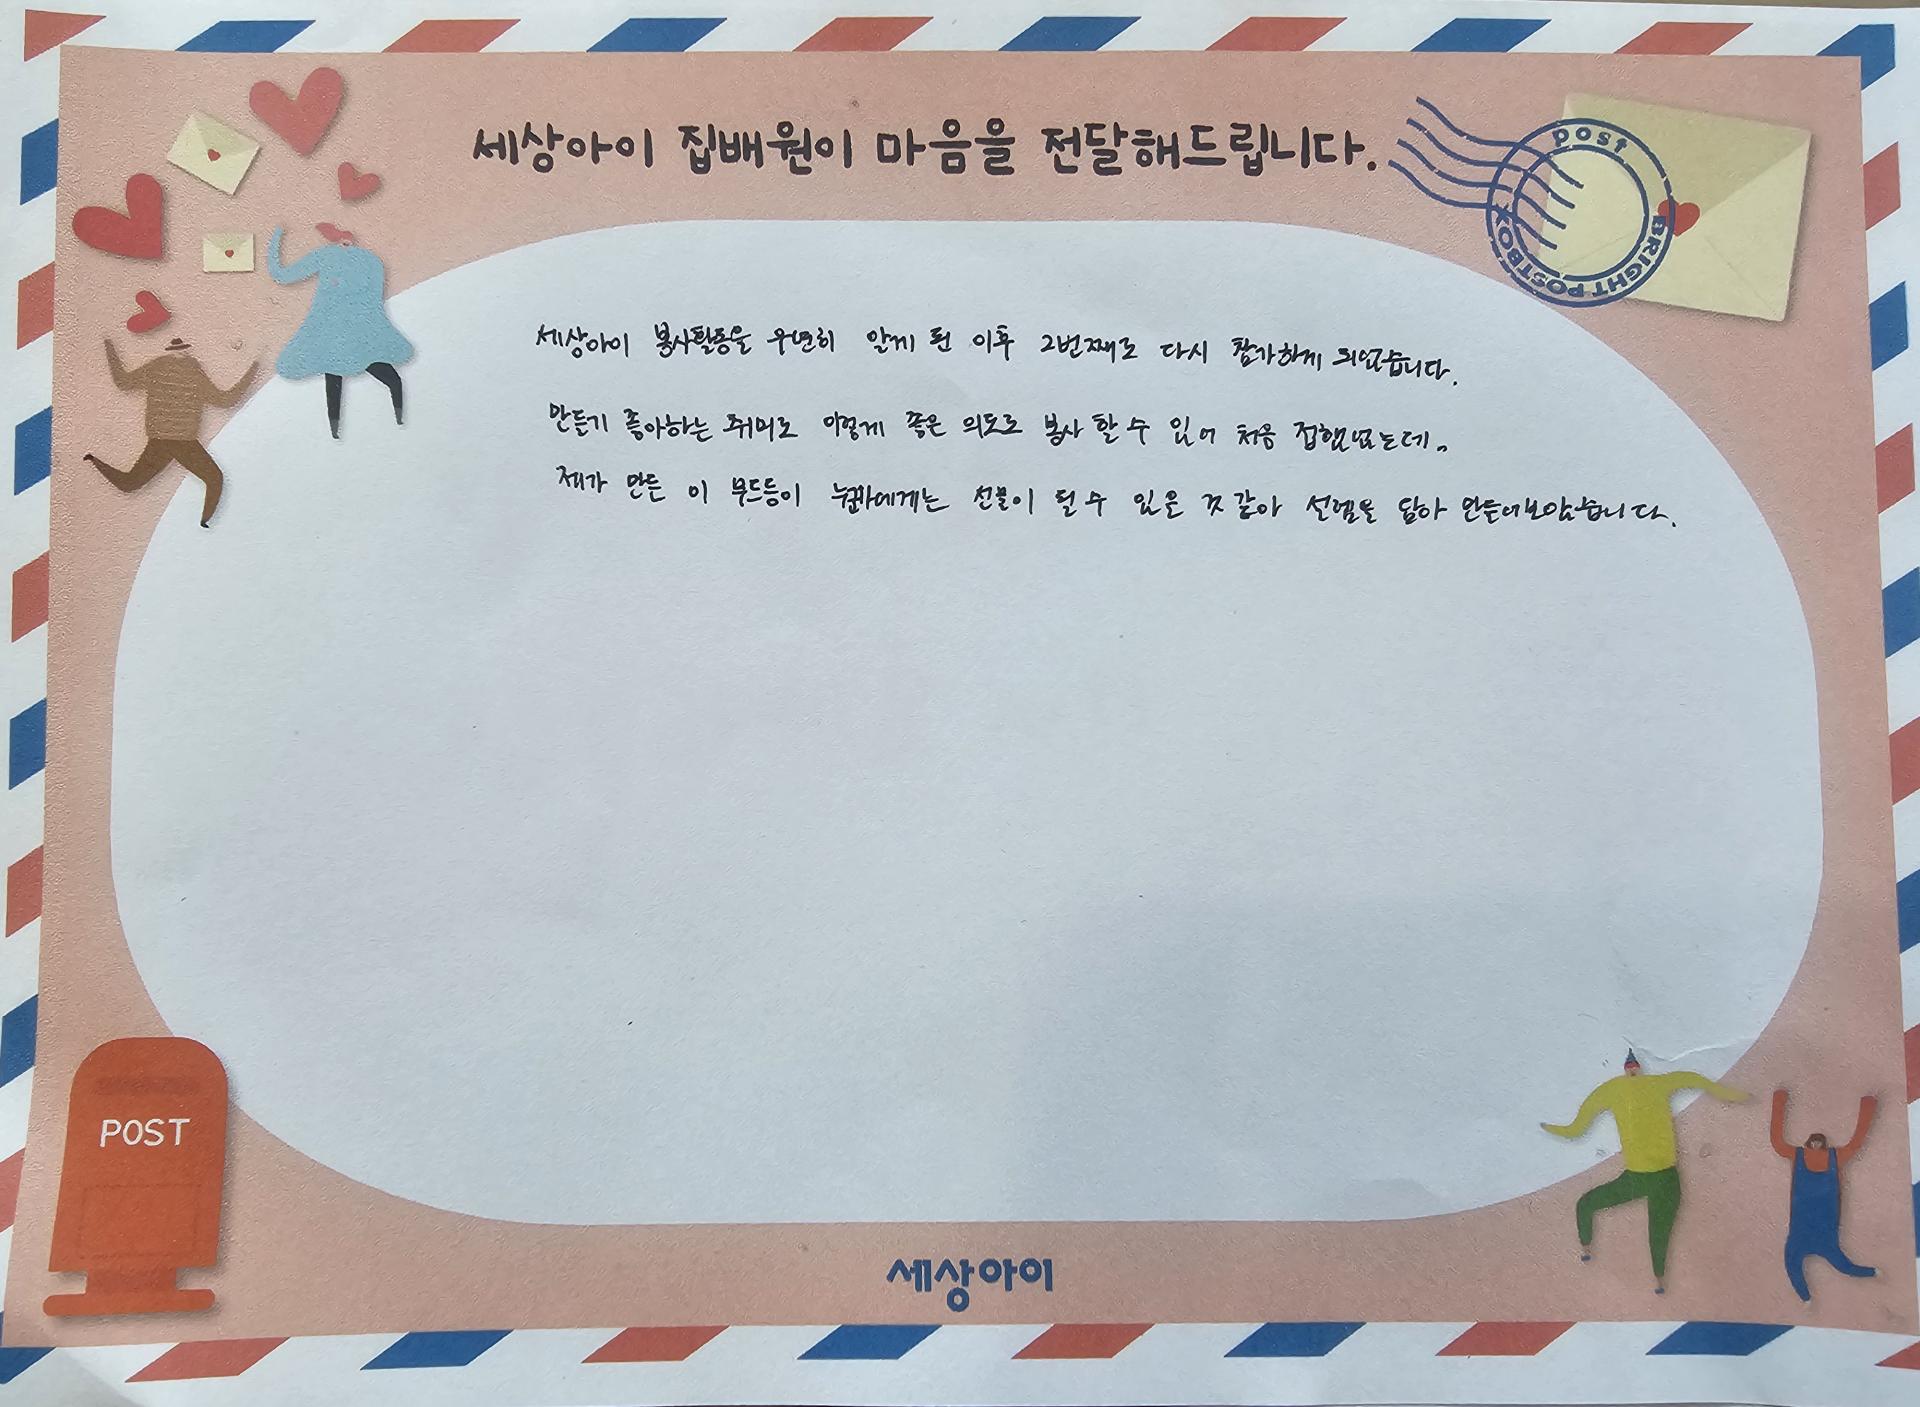 세상아이 집배원이 마음을 전달해드립니다.
post
BRIGHT POSTBOX
세상아이 봉사활동을 우연히 알게 된 이후 2번째로 다시 참가하게 되었습니다.
만들기 좋아하는 취미로 이렇게 좋은 의도로 봉사 할 수 있어 처음 접했었는데..
제가 만든 이 무드등이 누군가에게는 선물이 될 수 있을 것 같아 설렘을 담아 만들어보았습니다.
POST
세상아이